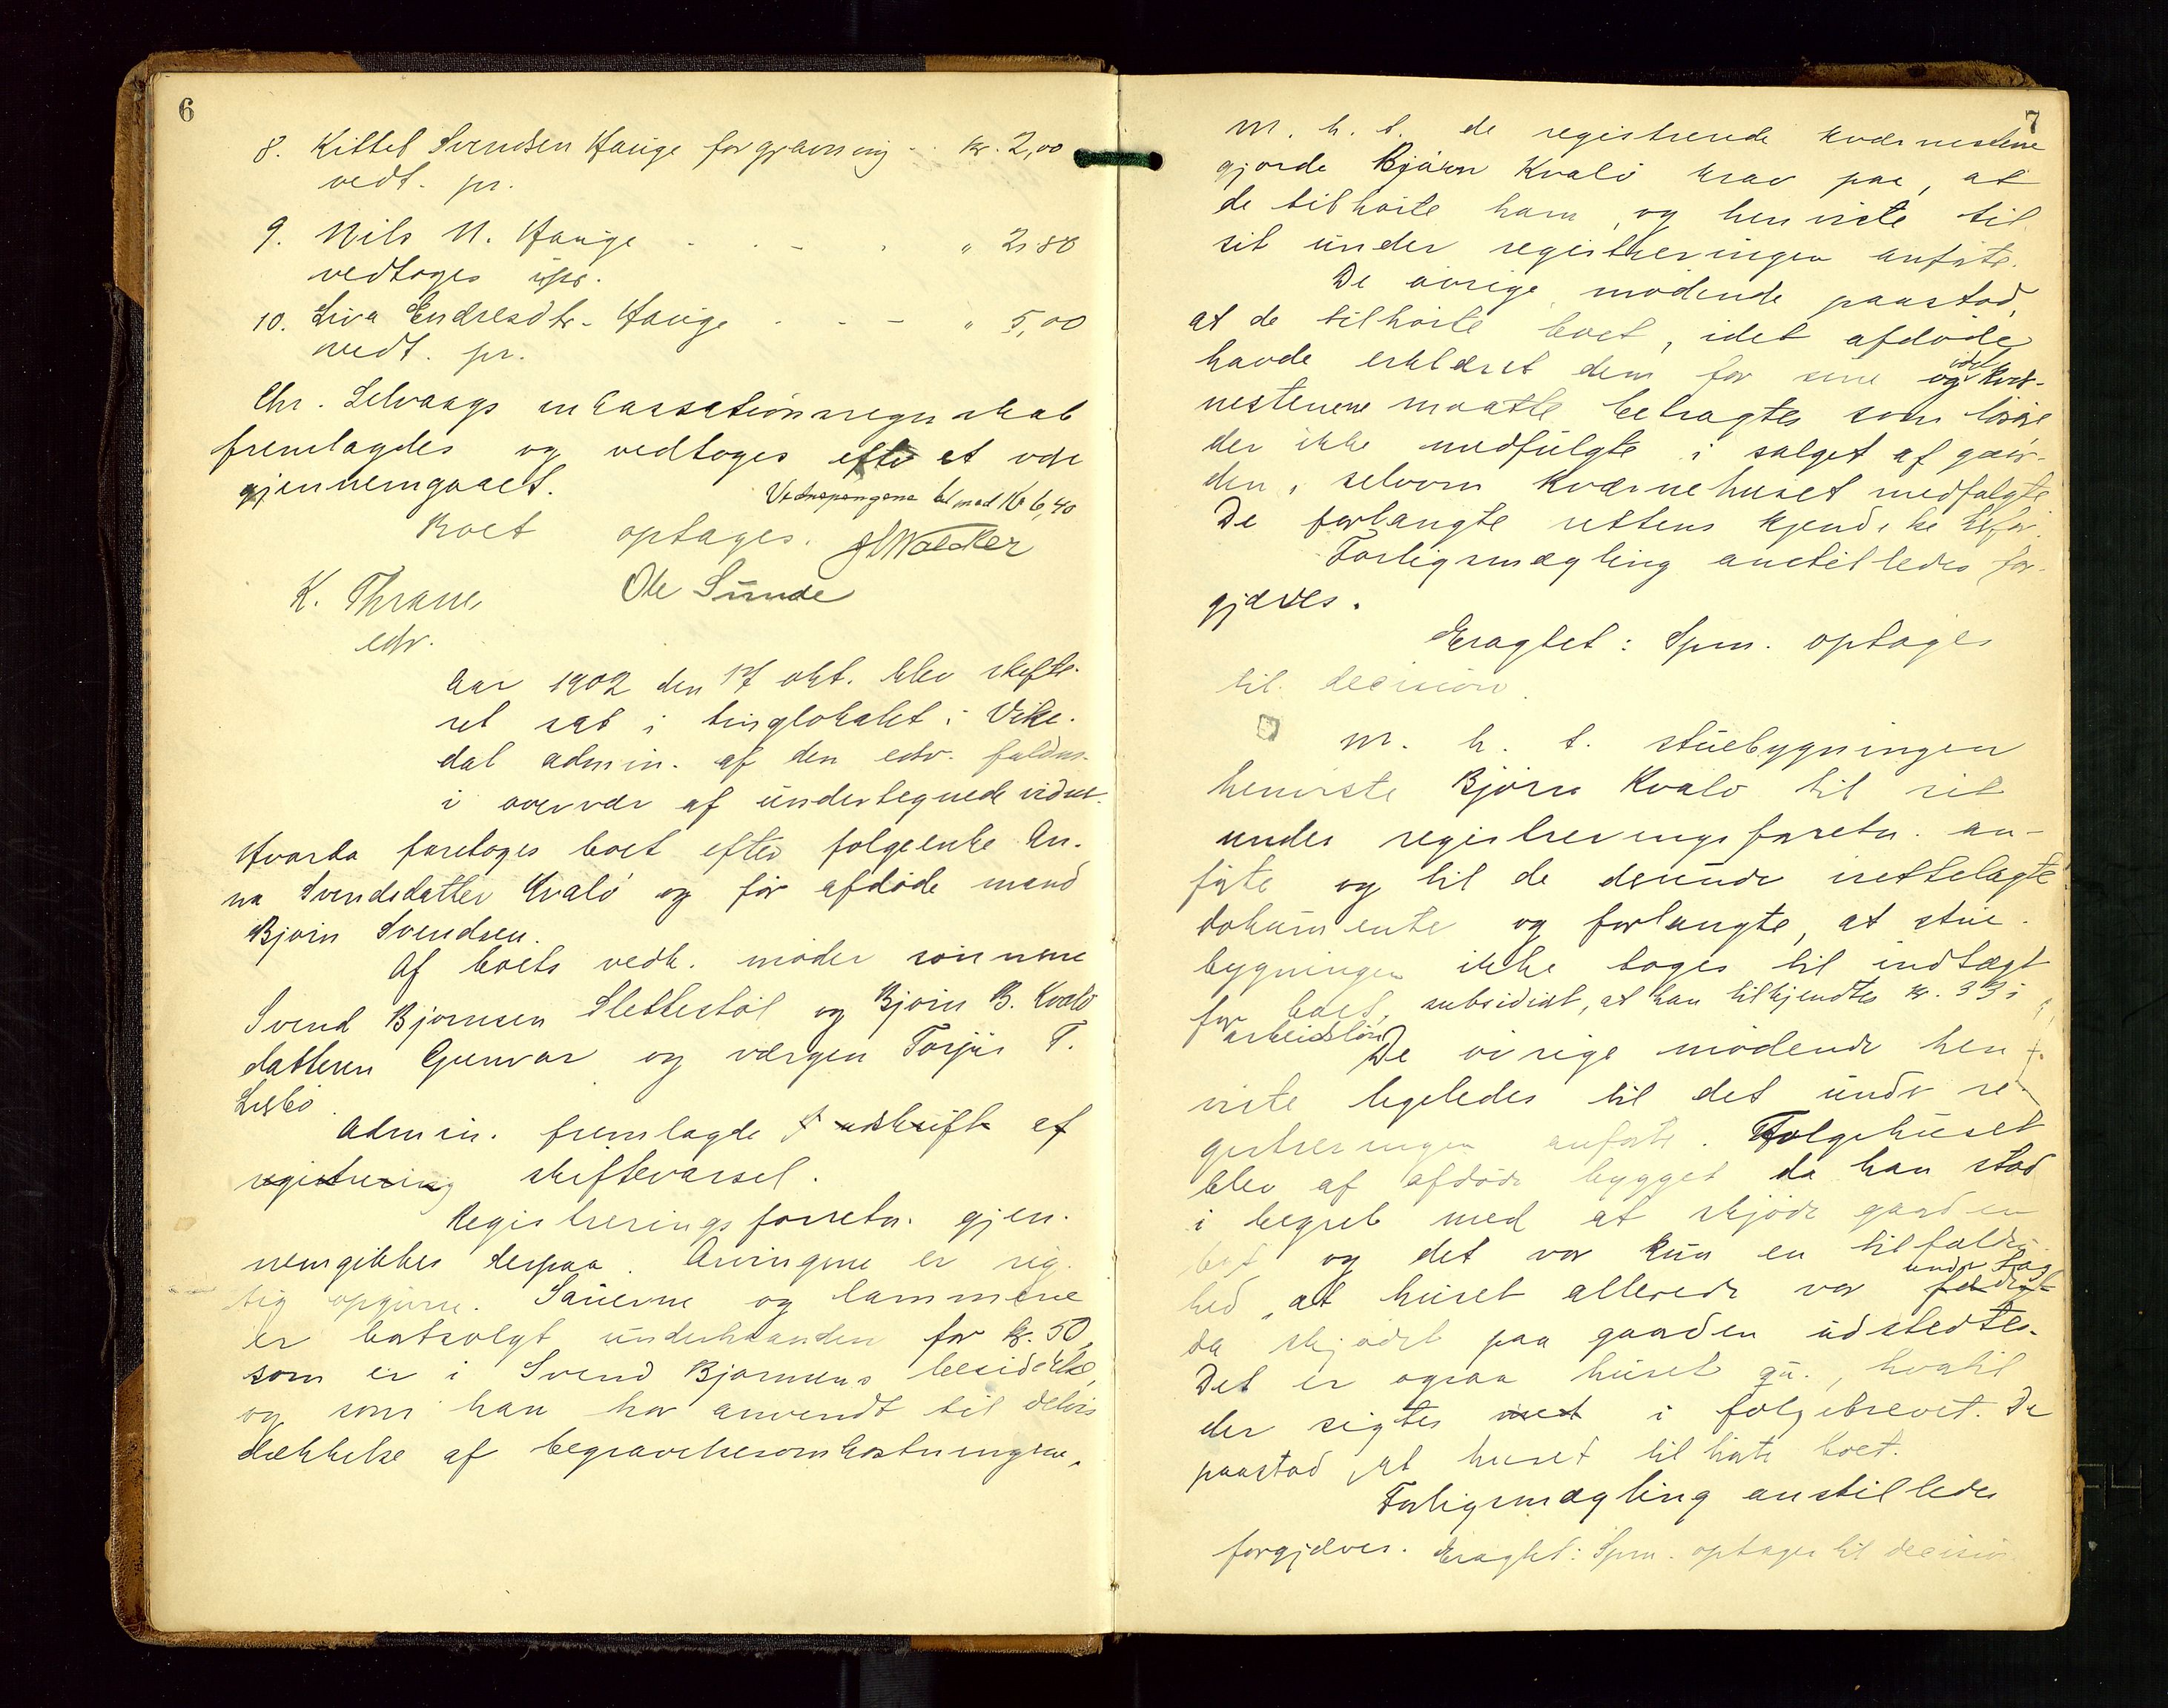 6
8. Kittel Svendsen Hauge for gravning - kr. 2,00
vedt. pr.
9. Nils N. Hauge - - - " 2,80
vedtoges
10. Siva Endresdtr. Hauge - - - " 5,00
vedt. pr.
Chr. Selvaags inkassationsregnskab
fremlagdes og vedtoges efter at være
gjennemgaaet.
Vidnepengene bl mod Kr 6,40
Boet optages.
K. Thrane Ole Sunde
edv.
Aar 1902 den 17 okt. blev skifte-
ret sat i tinglokalet i Vike-
dal admin. af den edv. fuldm.
i overvær af undertegnede vidner.
Hvorda foretoges boet efter følgeenke An-
na Svendsdatter Kvalø og før afdøde mand
Bjørn Svendsen.
Af boets vedk. møder sønnene
Svend Bjørnsen Slettestøl og Bjørn B. Kvalø
datteren Gunvor og værgen Torjus T.
Admin. fremlagde 1 udskrift af
registrering skiftevarsel.
Registreringsforretn. gjen-
nemgikkes derpaa. Arvingene er rig-
tig opgivne. Sauerne og lammene
er bortsolgt underhaanden for kr. 50,
som er i Svend Bjørnsens besiddelse,
og som han har anvendt til delvis
dækkelse af begravelsesomkostningene.
7
M. h. t. de registrerede kværnestene
gjorde Bjørn Kvalø krav paa, at
de tilhørte ham, og henviste til
sit under registreringen anførte.
De øvrige mødende paastod,
at de tilhørte boet, idet afdøde
havde erklæret dem for sine og idet kvær-
nestenene maatte betragtes som løsøre
der ikke medfulgte i salget af gaar-
den, selvom kværnehuset medfulgte
De forlangte rettens kjendelse herfor.
Forligsmægling anstilledes for-
gjæves.
Eragtet: Spm. optages
til decision.
M. h. t. stuebygningen
henviste Bjørn Kvalø til sit
under registreringsforretn. an-
førte og til de derunder irettelagte
dokumenter og forlangte, at stue-
bygningen ikke toges til indtægt
for boet, subsidiært, at han tilkjendtes kr. 33 i
arbeidsløn
De øvrige mødende hen-
viste ligeledes til det under re-
gistreringen anførte. Følgehuset
blev af afdøde bygget da han stod
i begreb med at skjøde gaarden
bort og det var kun en tilfældig-
hed, at huset allerede var under tag
da skjødet paa gaarden udstedtes.
Det er ogsaa huset qu., hvortil
der sigtes i følgebrevet. De
paastod, at huset tilhørte boet.
Forligsmægling anstilledes
forgjæves. Eragtet: Spm. optages til decision.